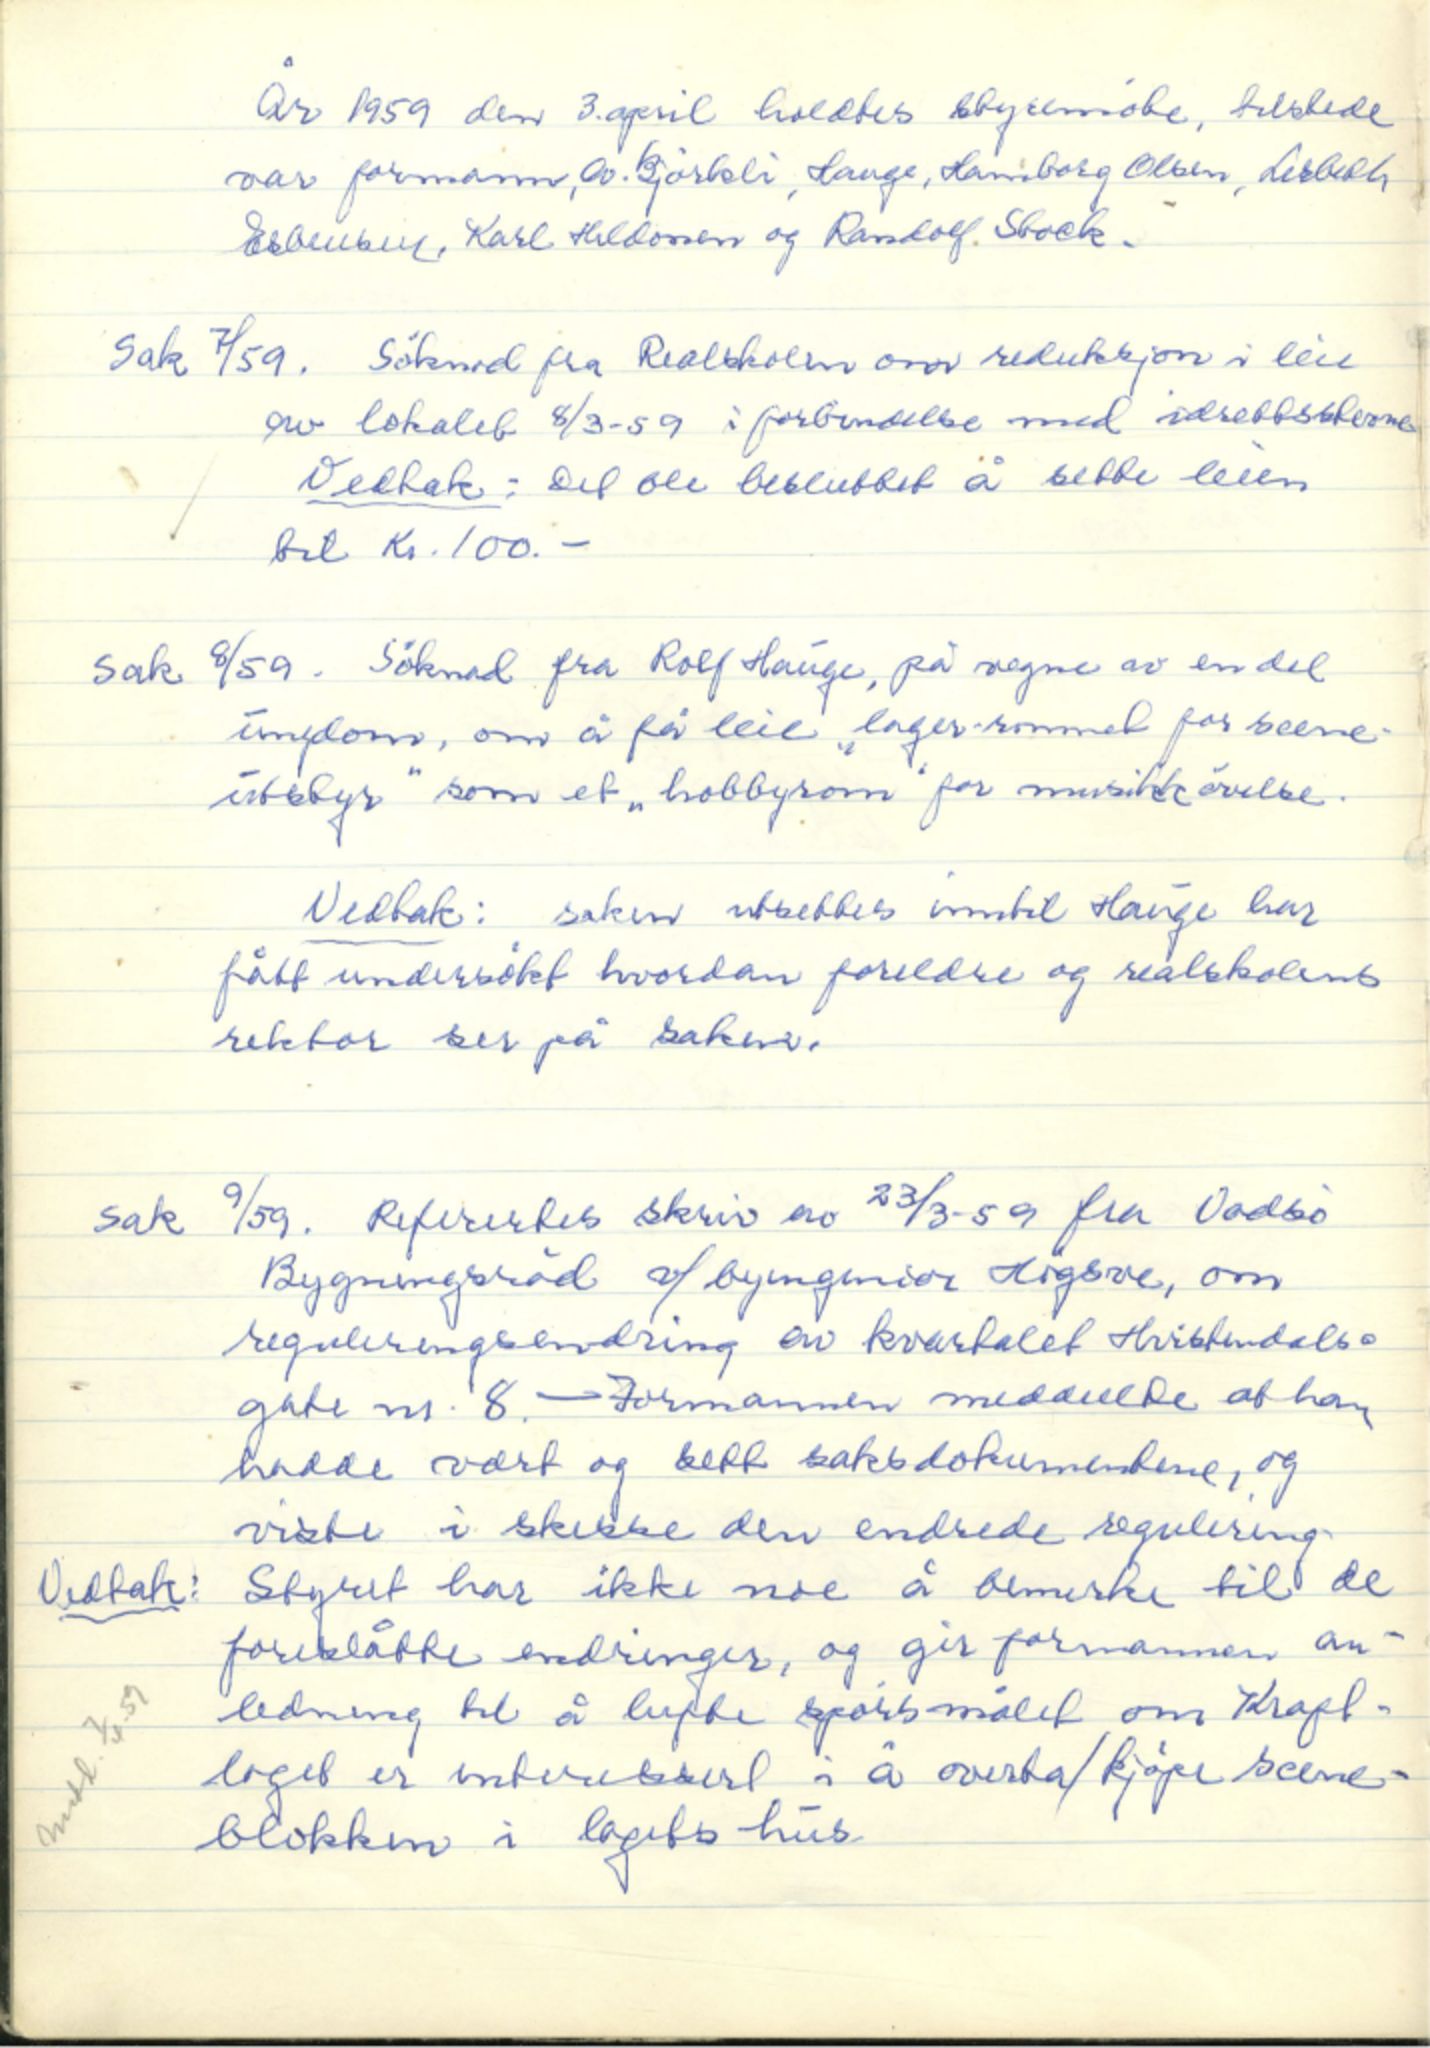 År 1959 den 3. april holdtes styremöte, tilstede
var formann, Av. Björkli, Hauge, Hamborg Olsen, Lisbeth
Esbensen, Karl Hildonen og Randolf Stock.
Sak 7/59. Söknad fra Realskolen om reduksjon i leie
av lokalet 8/3-59 i forbindelse med idrettsstevne
Vedtak: Det ble besluttet å sette leien
til Kr. 100.-
Sak 8/59. Söknad fra Rolf Hauge, på vegne av en del
ungdom, om å få leie „lager-rommet for scene-
utstyr" som et „hobbyrom" for musikkövelse.
Vedtak: saken utsettes inntil Hauge har
fått undersökt hvordan foreldre og realskolens
rektor ser på saken.
Sak 9/59. Referertes skriv av 23/3-59 fra Vadsö
Bygningsråd v/ byingeniör Högsve, om
reguleringsendring av kvartalet Hvistendals-
gate nr. 8. — Formannen meddelte at han
hadde vært og sett saksdokumentene, og
viste i skisse den endrede regulering
Vedtak: Styret har ikke noe å bemerke til de
foreslåtte endringer, og gir formannen an-
ledning til å lufte spörsmålet om Kraft-
laget er interessert i å overta/kjöpe scene-
blokken i lagets hus